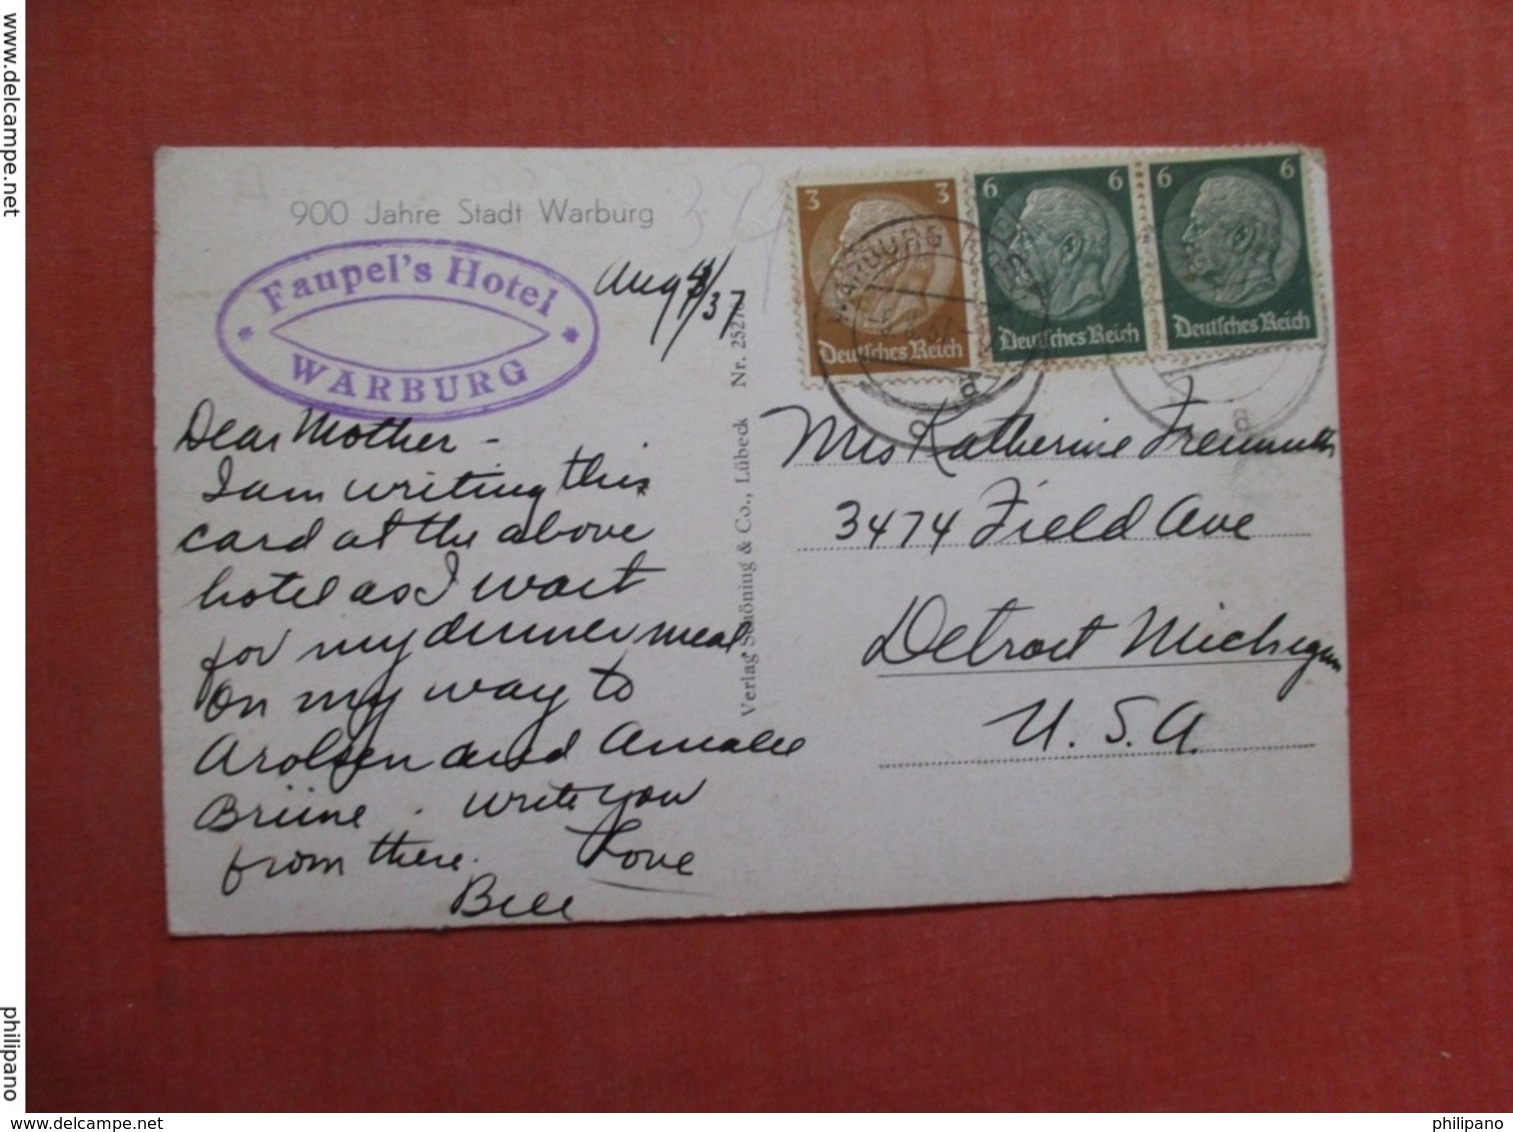 www.delcampe.net
900 Jahre Stadt Warburg
Faupel's Hotel
WARBURG
Aug 37
Dear Mother -
I am writing this
card at the above
hotel as I wait
for my dinner meal
on my way to
Arolsen and Amalie
Brüne. Write you
from there. Love
Bill
Verlag Schöning & Co., Lübeck Nr. 25276
3 3
Deutsches Reich
6 6
Deutsches Reich
6 6
Deutsches Reich
WARBURG
a
a
Mrs Katherine Freimuth
3474 Field Ave
Detroit Michigan
U. S. A.
philipano
www.delcampe.net
philipano